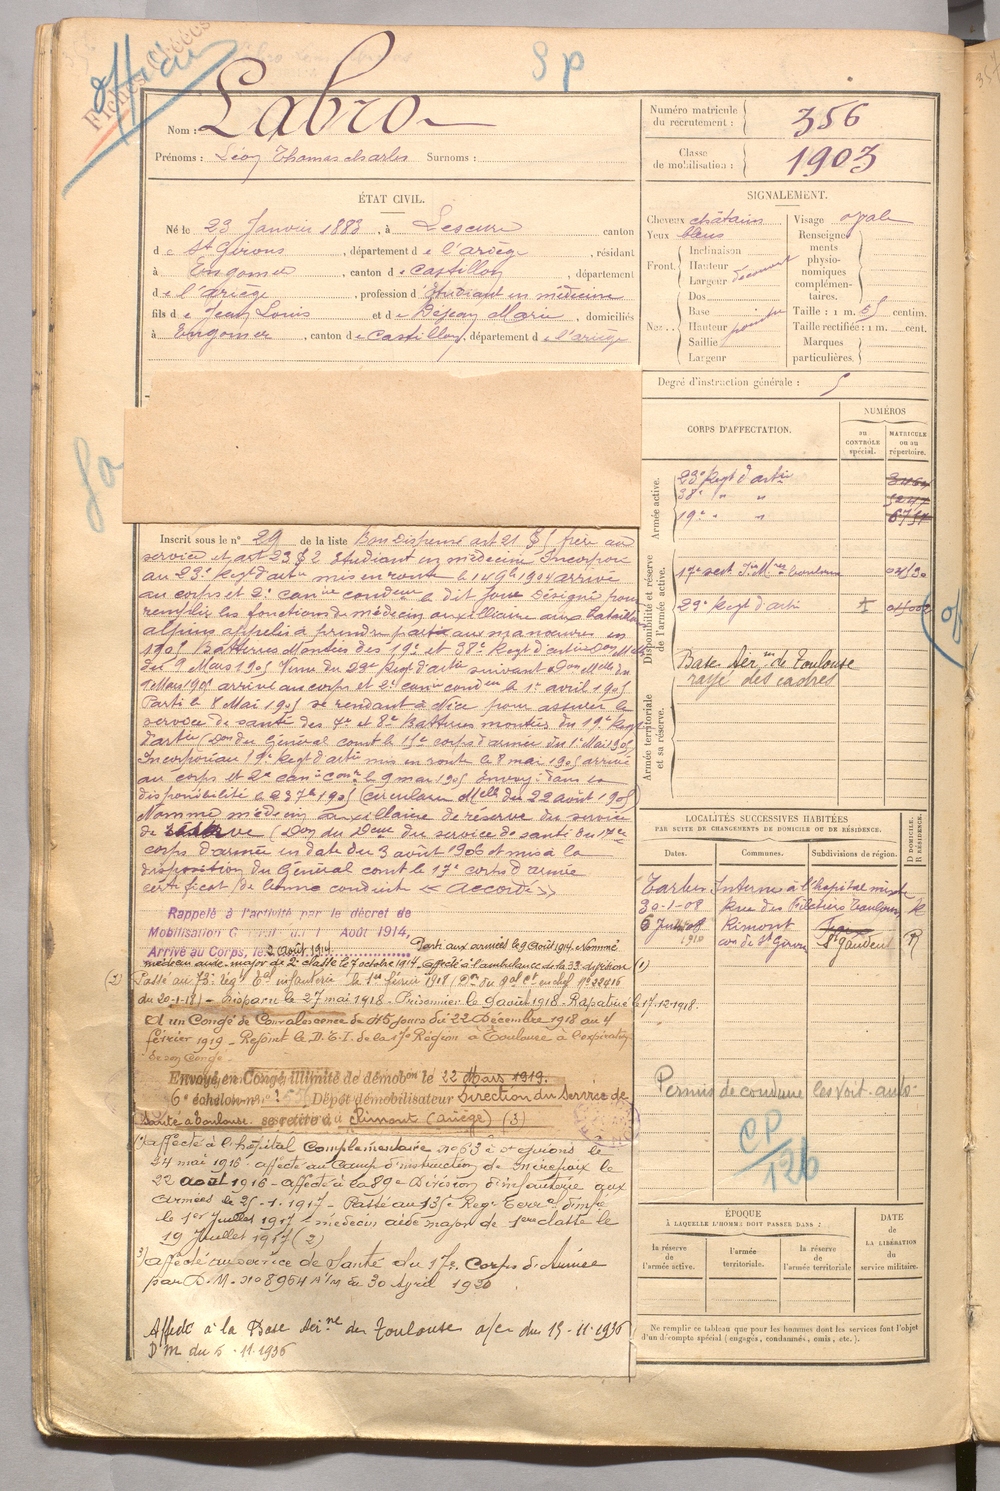 officier
Fiches Créées
S P
Nom : Labro
Prénoms : Léon Thomas Charles Surnoms :
Numéro matricule du recrutement : 356
Classe de mobilisation : 1903
ÉTAT CIVIL.
Né le 23 Janvier 1883, à Lescure canton
de St Girons, département de l'Ariège, résidant
à Engomer, canton de Castillon, département
de l'Ariège, profession d'Etudiant en médecine
fils de Jean Louis et de Déjean Marie, domiciliés
à Engomer, canton de Castillon, département de l'Ariège
SIGNALEMENT.
Cheveux châtains
Yeux bleus
Front. Inclinaison
Hauteur
Largeur
Nez. Dos
Base
Hauteur
Saillie
Largeur
Visage ovale
Renseignements physionomiques complémentaires.
Taille : 1 m. 65 centim.
Taille rectifiée : 1 m. cent.
Marques particulières.
Degré d'instruction générale : 5
Inscrit sous le n° 29 de la liste Bon Dispensé art 21 § 5 frère au
service et art 23 § 2 Etudiant en médecine Incorporé
au 23e Regt d'artie mis en route le 14 9bre 1904 arrivé
au corps et 2e canier condeur le dit jour Désigné pour
remplir les fonctions de médecin auxilliaire aux Bataillons
alpins appelés à prendre part aux manœuvres en
1905 Batteries Montées des 19e et 38e Regt d'artie Don Mlle
du 9 Mars 1905 Venu du 23e Regt d'artie suivant Don Mlle du
9 Mars 1905 arrivé au corps et 2e canier condeur le 1er avril 1905
Parti le 8 Mai 1905 se rendant à Nice pour assurer le
service de santé des 7e et 8e Batteries montées du 19e Regt
d'artie (Don du Général comt le 15e corps d'armée du 1er Mai 1905
Incorporé au 19e Regt d'artie mis en route le 8 mai 1905 arrivé
au corps et 2e canier conr le 9 mai 1905 Envoyé dans la
disponibilité le 23 7bre 1905 (circulaire Mlle du 22 août 1905)
Nommé médecin auxillaire de réserve du service
de (Don du Deur du service de santé du 17e
corps d'armée en date du 3 août 1906 et mis à la
disposition du Général comt le 17e corps d'armée
certificat de bonne conduite « Accordé »
Rappelé à l'activité par le décret de
Mobilisation Générale du 1er Août 1914,
Arrivé au Corps, le 2 Août 1914. Parti aux armées le 9 Août 1914. Nommé
médecin aide-major de 2e classe le 7 octobre 1914. Affecté à l'ambulance de la 33e division (1)
(2) Passé au 73e régt d'infanterie le 1er février 1918 (Dn du Gal Ct en chef N° 22416
du 20-1-18) - Disparu le 27 mai 1918 - Prisonnier le 9 août 1918 - Rapatrié le 17.12.1918.
a un Congé de Convalescence de 45 jours du 22 Décembre 1918 au 4
février 1919 - Rejoint le D.E.I. de la 17e Région à Toulouse à l'expiration
de son Congé.
Envoyé en Congé illimité de démobon le 22 Mars 1919.
6e échelon n° Dépôt démobilisateur Direction du Service de
Santé à Toulouse. se retire à Rimont (Ariège) (3)
1) affecté à l'hôpital Complémentaire no 63 à St Girons le
24 mai 1916 - affecté au Camp d'instruction de Mirepoix le
22 août 1916 - affecté à la 89e Division d'infanterie aux
Armées le 25-1-1917 - Passé au 135e Reg. Terral d'infie
le 1er Juillet 1917 - médecin aide major de 1ère classe le
19 Juillet 1917 (2)
3) affecté au service de Santé du 17e Corps d'Armée
par D.M. no 8964 A/M du 30 Avril 1920
Affecté à la Base Aérne de Toulouse a/c du 15-11-1936
D.M. du 6.11.1936
CORPS D'AFFECTATION.
NUMÉROS
au CONTRÔLE spécial.
MATRICULE ou au répertoire.
Armée active.
23e Regt d'artie
38e " "
19e " "
Disponibilité et réserve de l'armée active.
17e sect. d'Infirs Mres Toulouse
23e Regt d'artie
Base Aérne de Toulouse
rayé des cadres
Armée territoriale et sa réserve.
LOCALITÉS SUCCESSIVES HABITÉES
PAR SUITE DE CHANGEMENTS DE DOMICILE OU DE RÉSIDENCE.
Dates. Communes. Subdivisions de région. D DOMICILE. R RÉSIDENCE.
Tarbes Interne à l'hopital mixte
30-1-08 Rue des Filatiers Toulouse R
6 Juin 1910 Rimont
con de St Girons St Gaudens R
Permis de conduire les Voit. auto-
CP
126
ÉPOQUE
À LAQUELLE L'HOMME DOIT PASSER DANS :
la réserve de l'armée active.
l'armée territoriale.
la réserve de l'armée territoriale
DATE de LA LIBÉRATION du service militaire.
Ne remplir ce tableau que pour les hommes dont les services font l'objet
d'un décompte spécial (engagés, condamnés, omis, etc.).